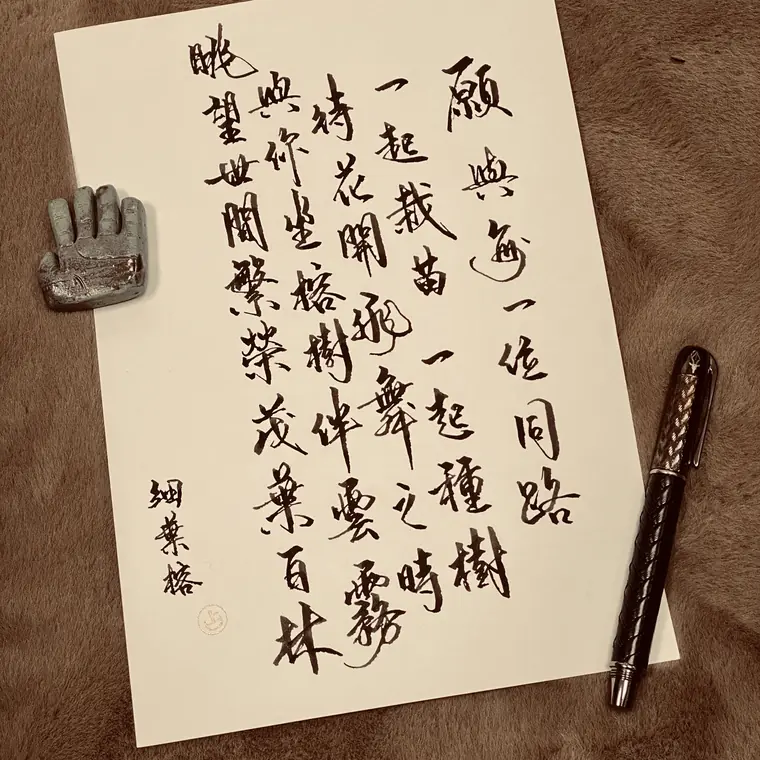 願與每一位同路
一起栽苗 一起種樹
待花開飛舞之時
與你坐榕樹伴雲霧
眺望世間繁榮茂葉百林
細葉榕